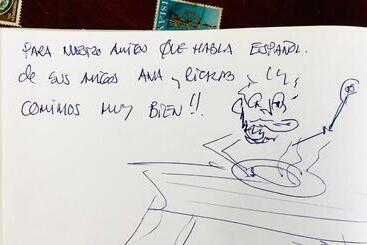 PARA NUESTRO AMIGO QUE HABLA ESPAÑOL.
de SUS AMIGOS ANA y
COMIMOS MUY BIEN!!